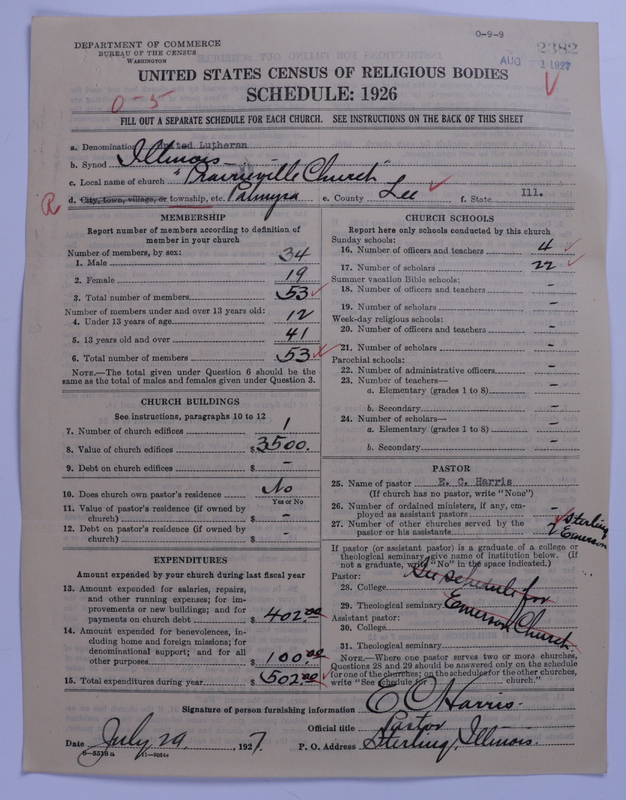 0-9-9
DEPARTMENT OF COMMERCE
BUREAU OF THE CENSUS
WASHINGTON
2382
AUG 1 1927
UNITED STATES CENSUS OF RELIGIOUS BODIES
SCHEDULE: 1926
0-5
FILL OUT A SEPARATE SCHEDULE FOR EACH CHURCH. SEE INSTRUCTIONS ON THE BACK OF THIS SHEET
a. Denomination United Lutheran
b. Synod Illinois
c. Local name of church "Prairieville Church"
R d. City, town, village, or township, etc. Palmyra e. County Lee f. State Ill.
MEMBERSHIP
Report number of members according to definition of
member in your church
Number of members, by sex:
1. Male 34
2. Female 19
3. Total number of members 53
Number of members under and over 13 years old:
4. Under 13 years of age 12
5. 13 years old and over 41
6. Total number of members 53
NOTE.—The total given under Question 6 should be the
same as the total of males and females given under Question 3.
CHURCH BUILDINGS
See instructions, paragraphs 10 to 12
7. Number of church edifices 1
8. Value of church edifices $ 3500.
9. Debt on church edifices $ -
10. Does church own pastor's residence No
Yes or No
11. Value of pastor's residence (if owned by
church) $ -
12. Debt on pastor's residence (if owned by
church) $ -
EXPENDITURES
Amount expended by your church during last fiscal year
13. Amount expended for salaries, repairs,
and other running expenses; for im-
provements or new buildings; and for
payments on church debt $ 402.00
14. Amount expended for benevolences, in-
cluding home and foreign missions; for
denominational support; and for all
other purposes $ 100.00
15. Total expenditures during year $ 502.00
CHURCH SCHOOLS
Report here only schools conducted by this church
Sunday schools:
16. Number of officers and teachers 4
17. Number of scholars 22
Summer vacation Bible schools:
18. Number of officers and teachers -
19. Number of scholars -
Week-day religious schools:
20. Number of officers and teachers -
21. Number of scholars -
Parochial schools:
22. Number of administrative officers -
23. Number of teachers—
a. Elementary (grades 1 to 8) -
b. Secondary -
24. Number of scholars—
a. Elementary (grades 1 to 8) -
b. Secondary -
PASTOR
25. Name of pastor E. C. Harris
(If church has no pastor, write "None")
26. Number of ordained ministers, if any, em-
ployed as assistant pastors -
27. Number of other churches served by the
pastor or his assistants Sterling
Emerson
If pastor (or assistant pastor) is a graduate of a college or
theological seminary, give name of institution below. (If
not a graduate, write "No" in the space indicated.)
Pastor:
28. College See schedule for
29. Theological seminary Emerson Church.
Assistant pastor:
30. College
31. Theological seminary
NOTE.—Where one pastor serves two or more churches,
Questions 28 and 29 should be answered only on the schedule
for one of the churches; on the schedule for the other churches,
write "See schedule for church."
Signature of person furnishing information E C Harris.
Official title Pastor
Date July 29, 1927. P. O. Address Sterling, Illinois.